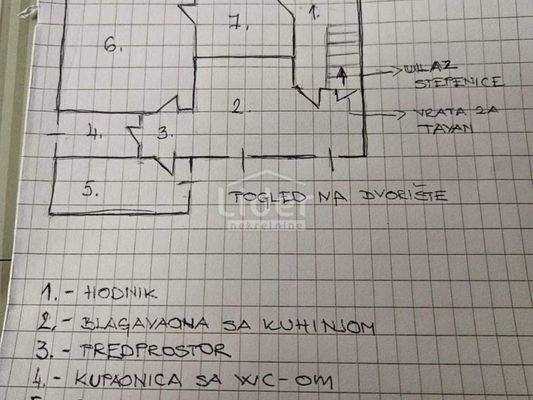 7.
1.
6.
ULAZ
STEPENICE
2.
4.
3.
VRATA ZA
TAVAN
5.
POGLED NA DVORIŠTE
Lider
nekretnine
1. - HODNIK
2. - BLAGAVAONA SA KUHINJOM
3. - PREDPROSTOR
4. - KUPAONICA SA WC-OM